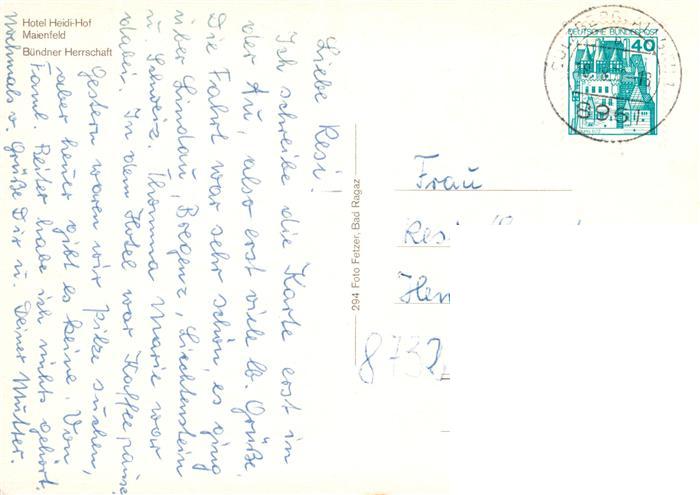 Hotel Heidi-Hof
Maienfeld
Bündner Herrschaft
Liebe Resi!
Ich schreibe die Karte erst in
der Au, also erst viele lb. Grüße.
Die Fahrt war sehr schön, es ging
über Lindau, Bregenz, Liechtenstein
u. Schweiz. Thomma Marie war
dabei. In dem Hotel war Kaffeepause
Gestern waren wir Pilze suchen,
aber heuer gibt es keine. Von
Faml. Reiter habe ich nichts gehört.
Nochmals v. Grüße Dir u. Deiner Mutter.
294 Foto Fetzer, Bad Ragaz
DEUTSCHE BUNDESPOST
40
8951
Frau
Resi
8732